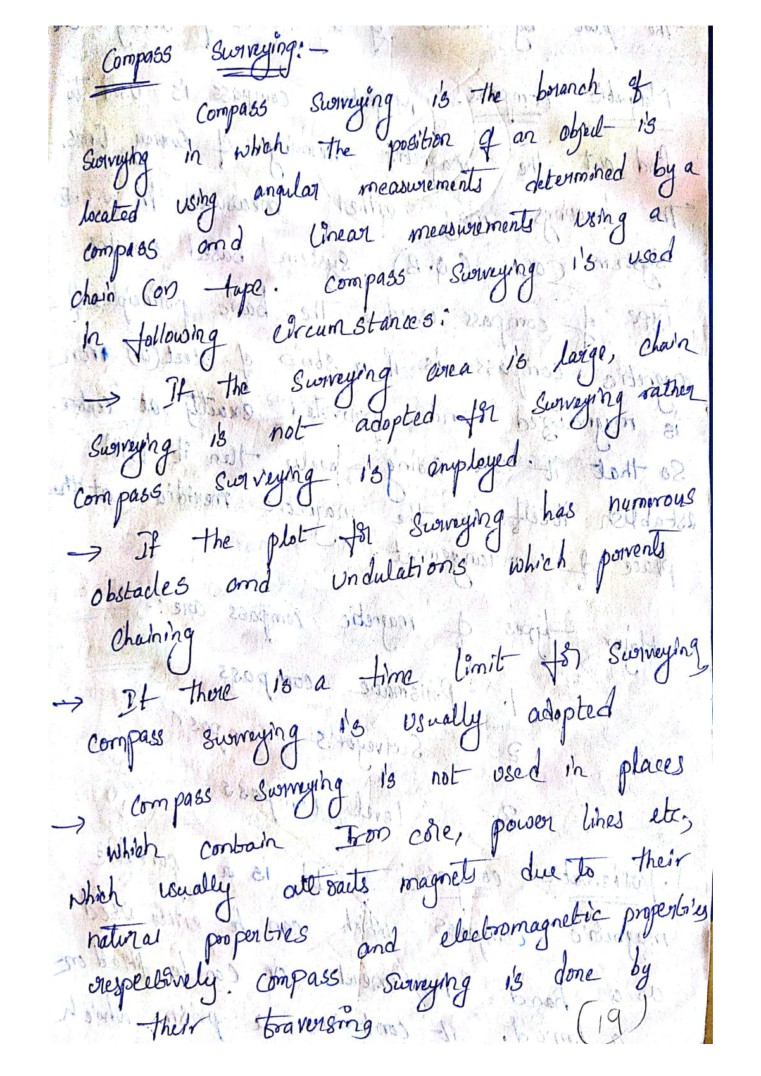 Compass Surveying:-
Compass Surveying is the branch of
Surveying in which the position of an object is
located using angular measurements determined by a
compass and linear measurements using a
chain (or) tape. Compass Surveying is used
in following circumstances:
→ If the Surveying area is large, chain
Surveying is not adopted for Surveying rather
Compass Surveying is employed.
→ If the plot for Surveying has numerous
obstacles and undulations which prevents
chaining
→ If there is a time limit for Surveying,
Compass Surveying is usually adopted
→ Compass Surveying is not used in places
which contain Iron core, power lines etc.,
which usually attracts magnets due to their
natural properties and electromagnetic properties
respectively. Compass Surveying is done by
their traversing
(19)